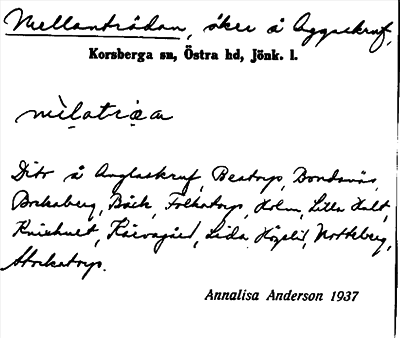 Mellanträdan, åker å Aggaskruf,
Korsberga sn, Östra hd, Jönk. l.
Dito å Anglaskruf, Beatorp, Bondsnäs,
Boskaberg, Bäck, Folkatorp, Holm, Lilla Hult,
Knixhult, Lida, Norteberg,
Stockatorp.
Annalisa Anderson 1937